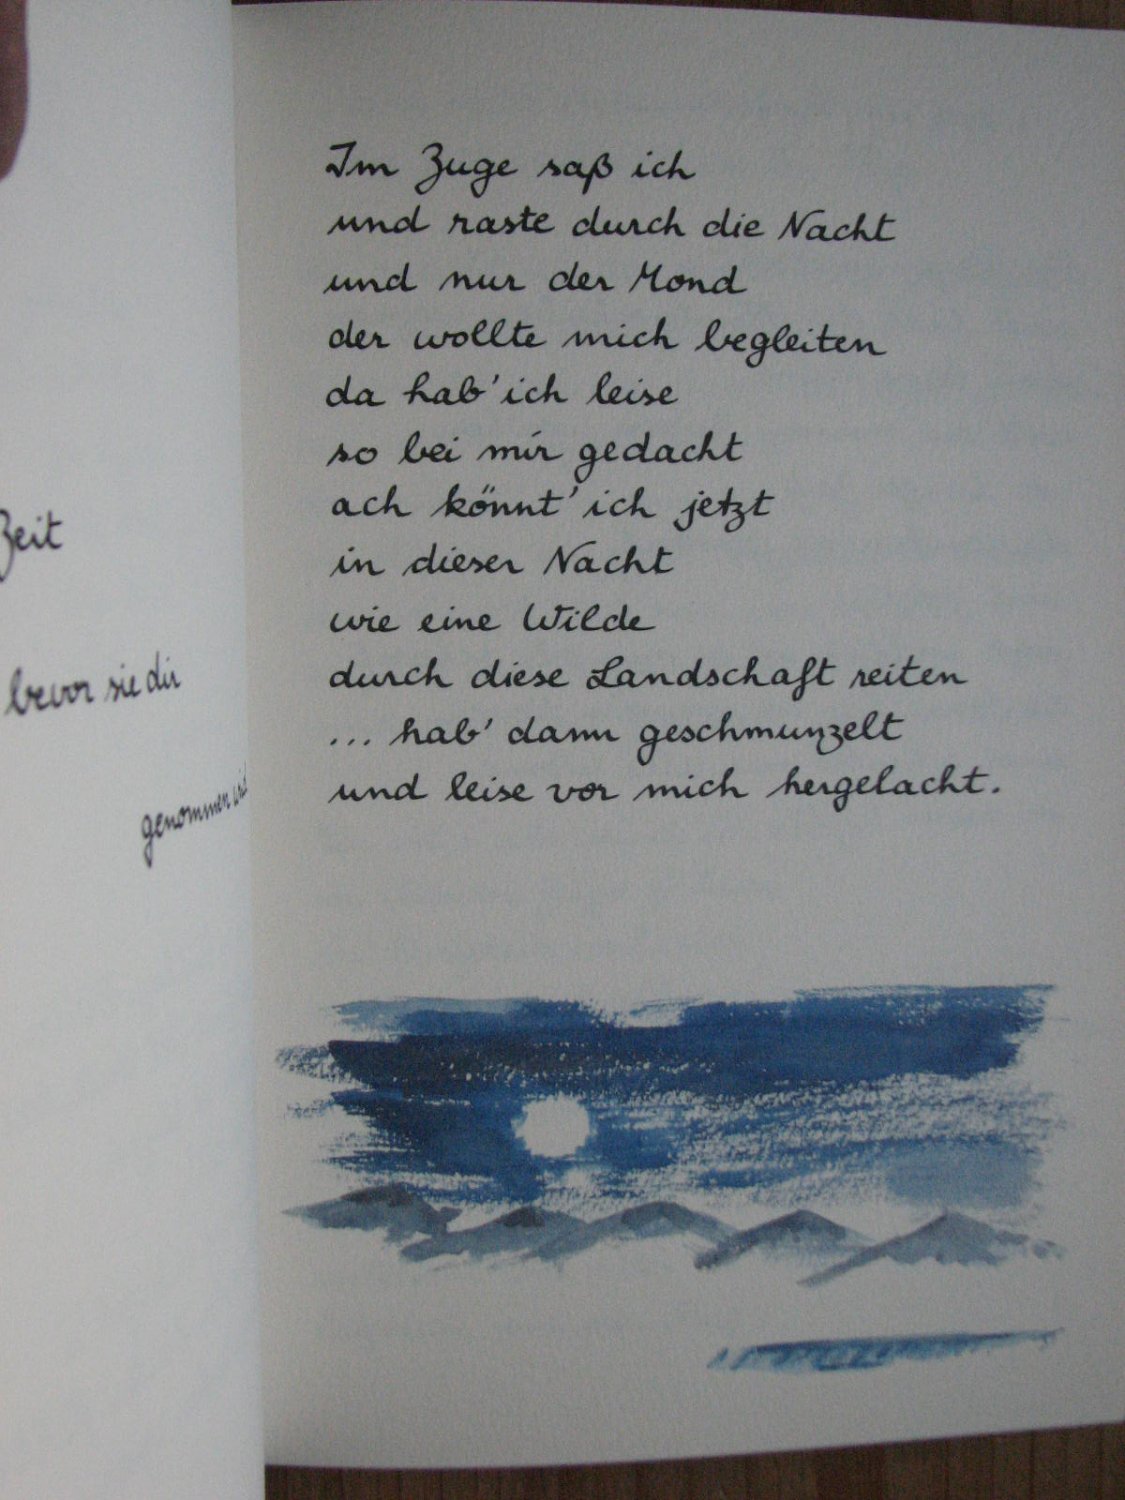 Zeit
bevor sie dir
genommen wird
Im Zuge saß ich
und raste durch die Nacht
und nur der Mond
der wollte mich begleiten
da hab' ich leise
so bei mir gedacht
ach könnt' ich jetzt
in dieser Nacht
wie eine Wilde
durch diese Landschaft reiten
... hab' dann geschmunzelt
und leise vor mich hergelacht.